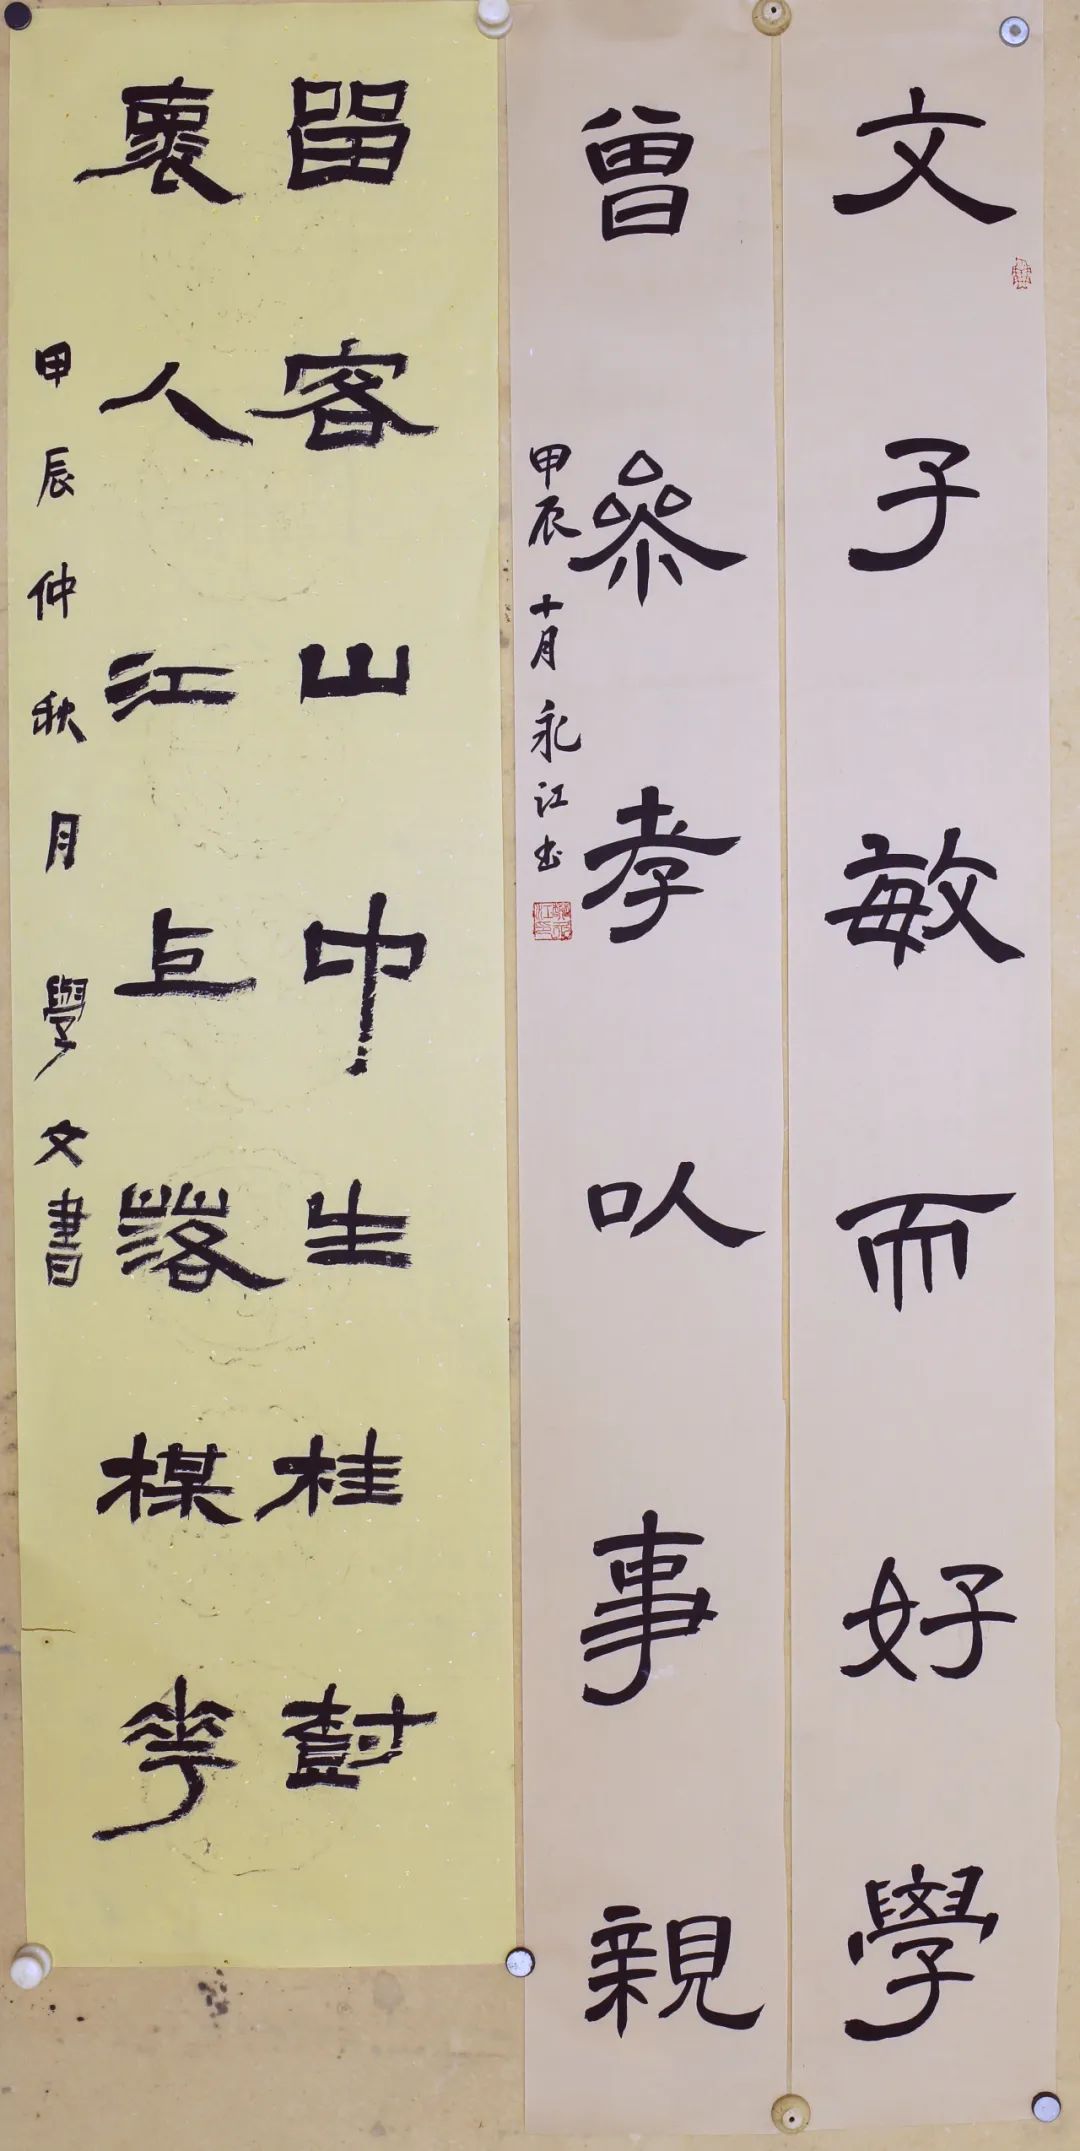 文子敏而好學
曾參孝以事親
甲辰十月永江书
畱客山中生桂尌
褱人江上落楳華
甲辰仲秋月學文書